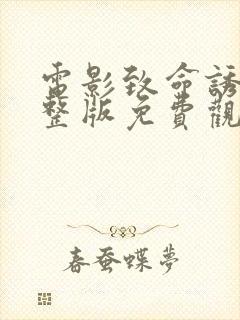 電影致命誘
整版免費觀
春蚕蝶夢